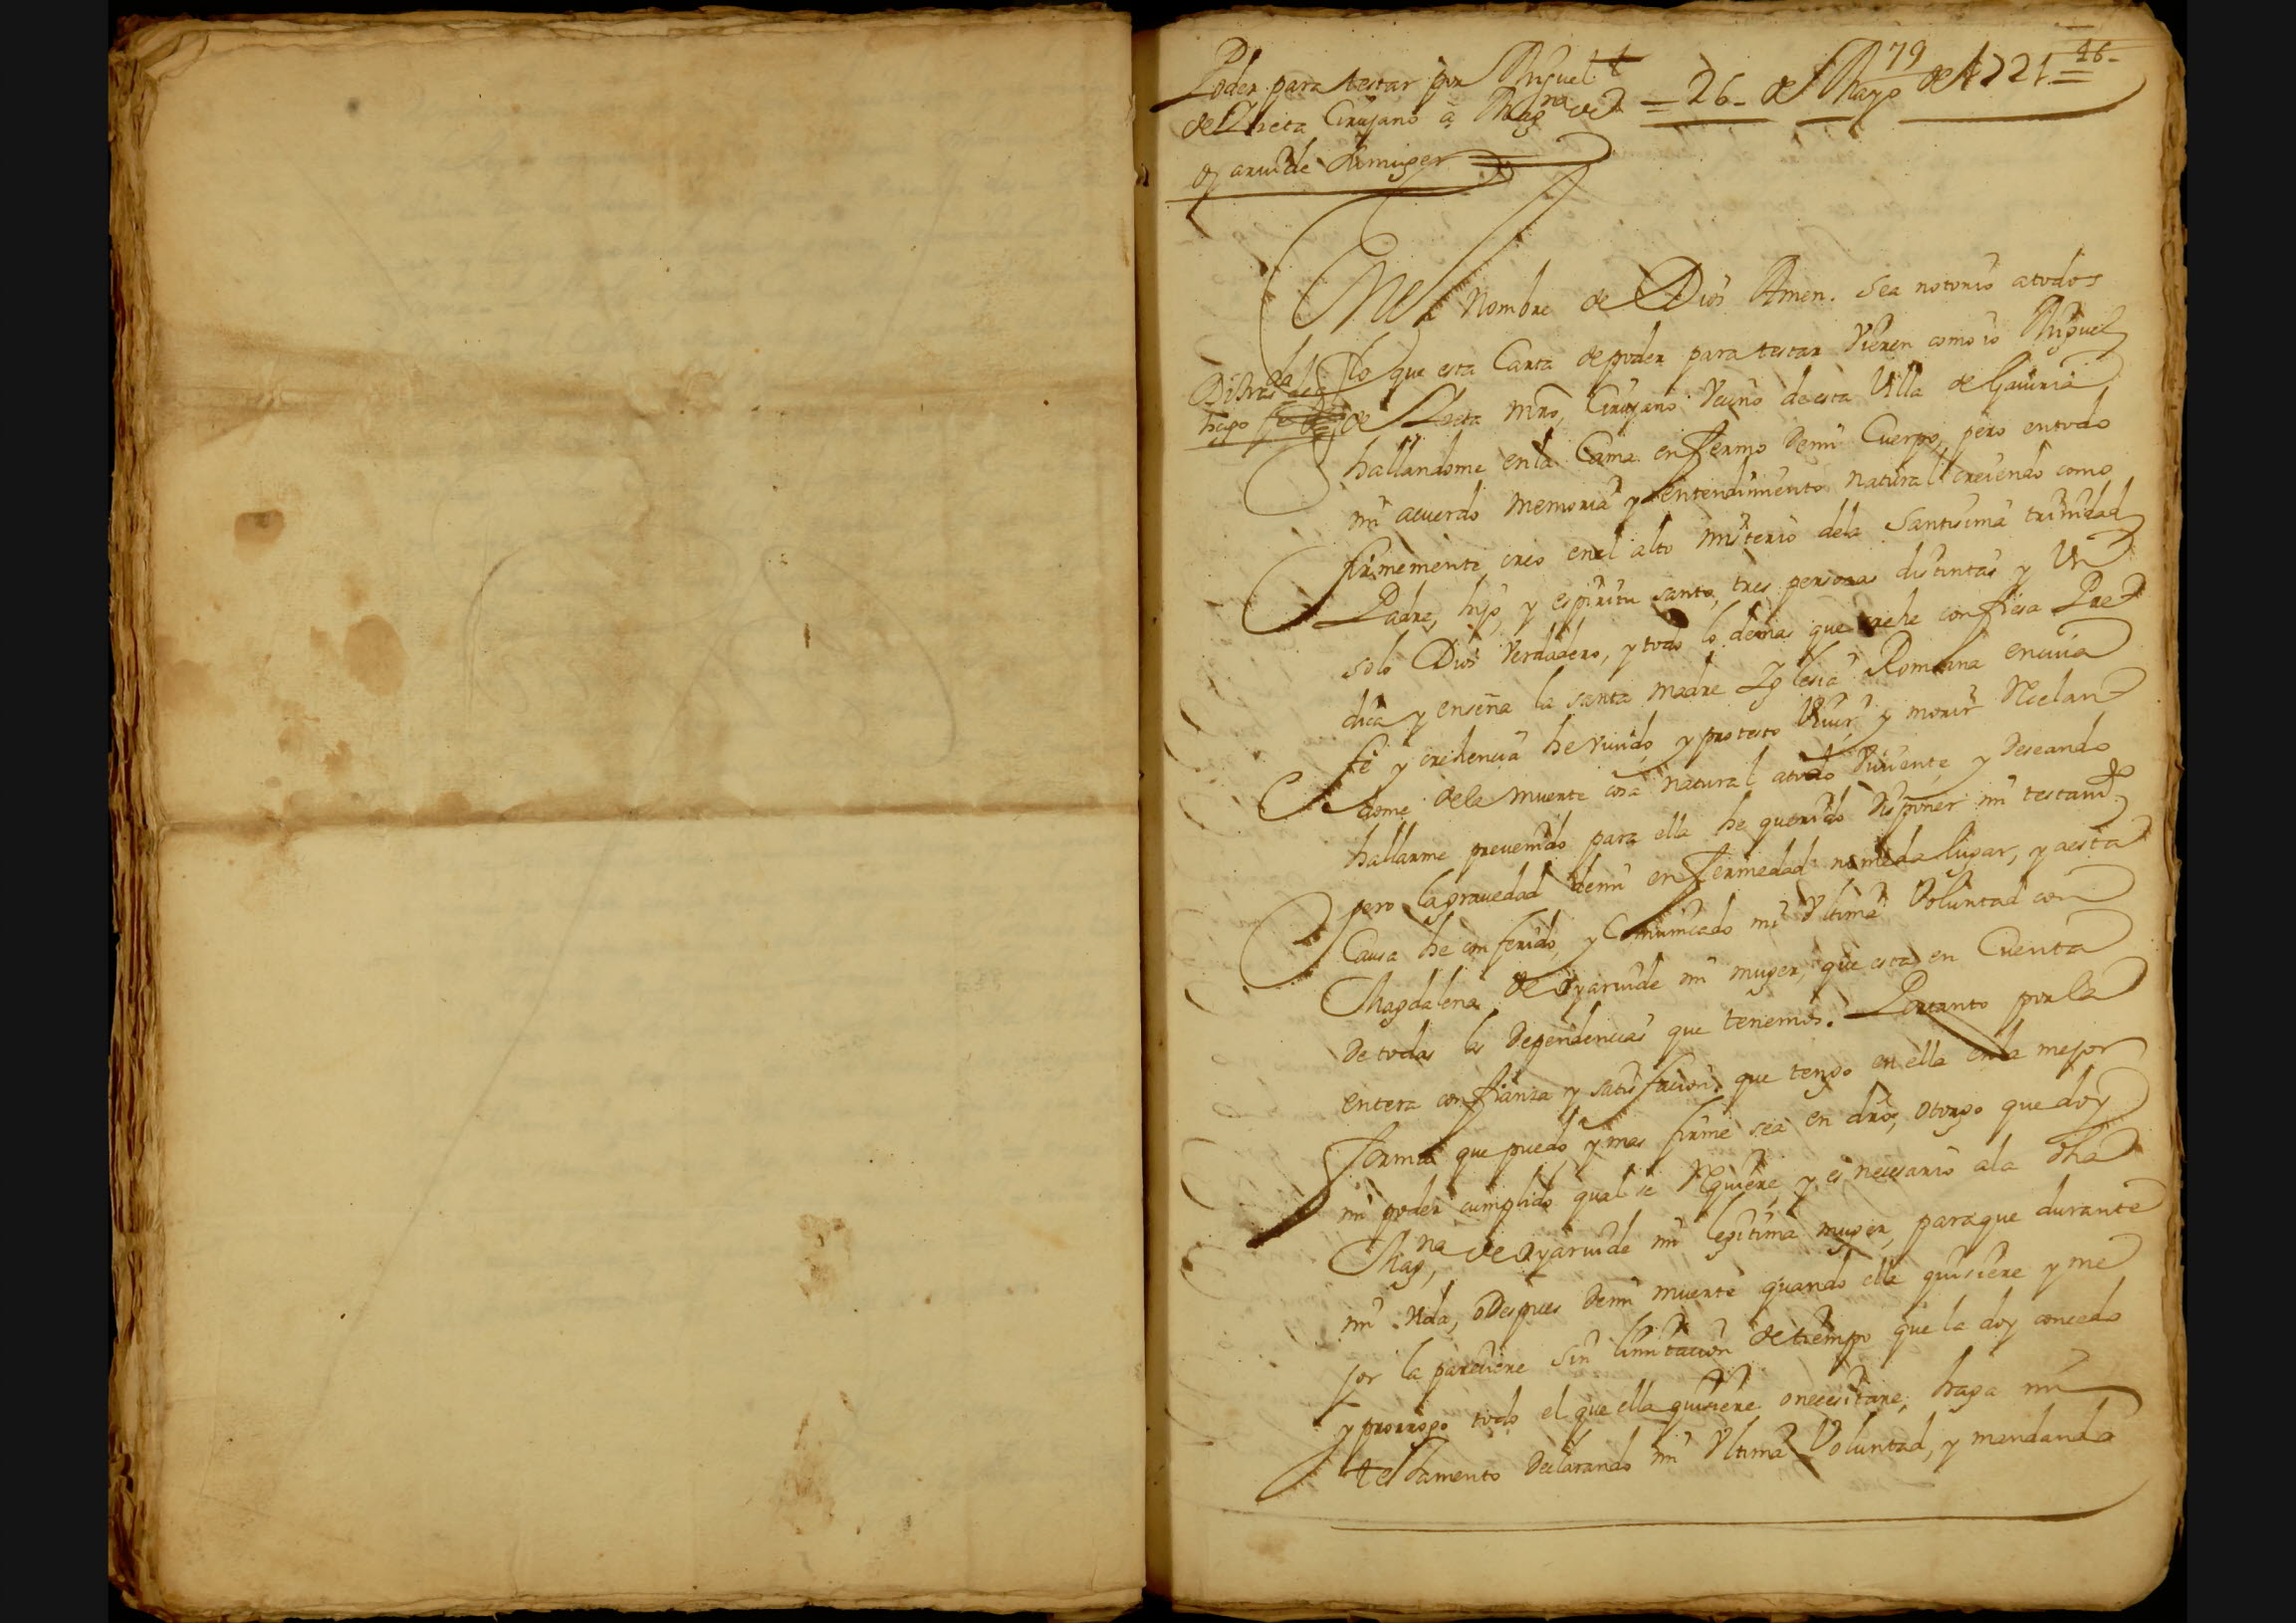 Poder para testar por Miguel
de Urreta Cirujano a Mag^na de
Oyaruide su muger
= 26 - de Mayo de 1721 =
79
46
En el Nombre de Dios Amen. Sea notorio a todos
lo que esta Carta de poder para testar vieren como io Miguel
de Urreta mro, Cirujano Vecino de esta Villa de Gauiria
hallandome en la Cama enfermo de mi Cuerpo, pero en todo
mi acuerdo memoria y entendimiento natural creiendo como
firmemente creo en el alto misterio de la Santisima trinidad
Padre, hijo, y espiritu santo, tres personas distintas y Un
solo Dios Verdadero, y todo lo demas que crehe confiesa Pre
dica y enseña la santa madre Yglesia Romana en cuia
fe y crehencia he viuido, y protesto Viuir, y morir Recelan
dome de la muerte cosa natural a todo viuiente y deseando
hallarme preuenido para ella he querido disponer mi testam^to
pero la grauedad de mi enfermedad no me da lugar, y a esta
Causa he conferido, y Comunicado mi Vltima Voluntad con
Magdalena de Oyaruide mi muger, que esta en Cuenta
de todas las dependencias que tenemos. Portanto por la
entera confianza y satisfacion que tengo en ella en la mejor
forma que puedo y mas firme sea en dro, otorgo que doy
mi poder cumplido qual se Requiere, y es necesario a la dha
Mag,^na de Oyaruide mi legitima muger, para que durante
mi vida, o despues de mi muerte quando ella quisiere y me
jor la pareciere sin limitacion de tiempo que la doy concedo
y prorrogo todo el que ella quisiere o necesitare, haga mi
testamento declarando mi Vltima Voluntad, y mandando